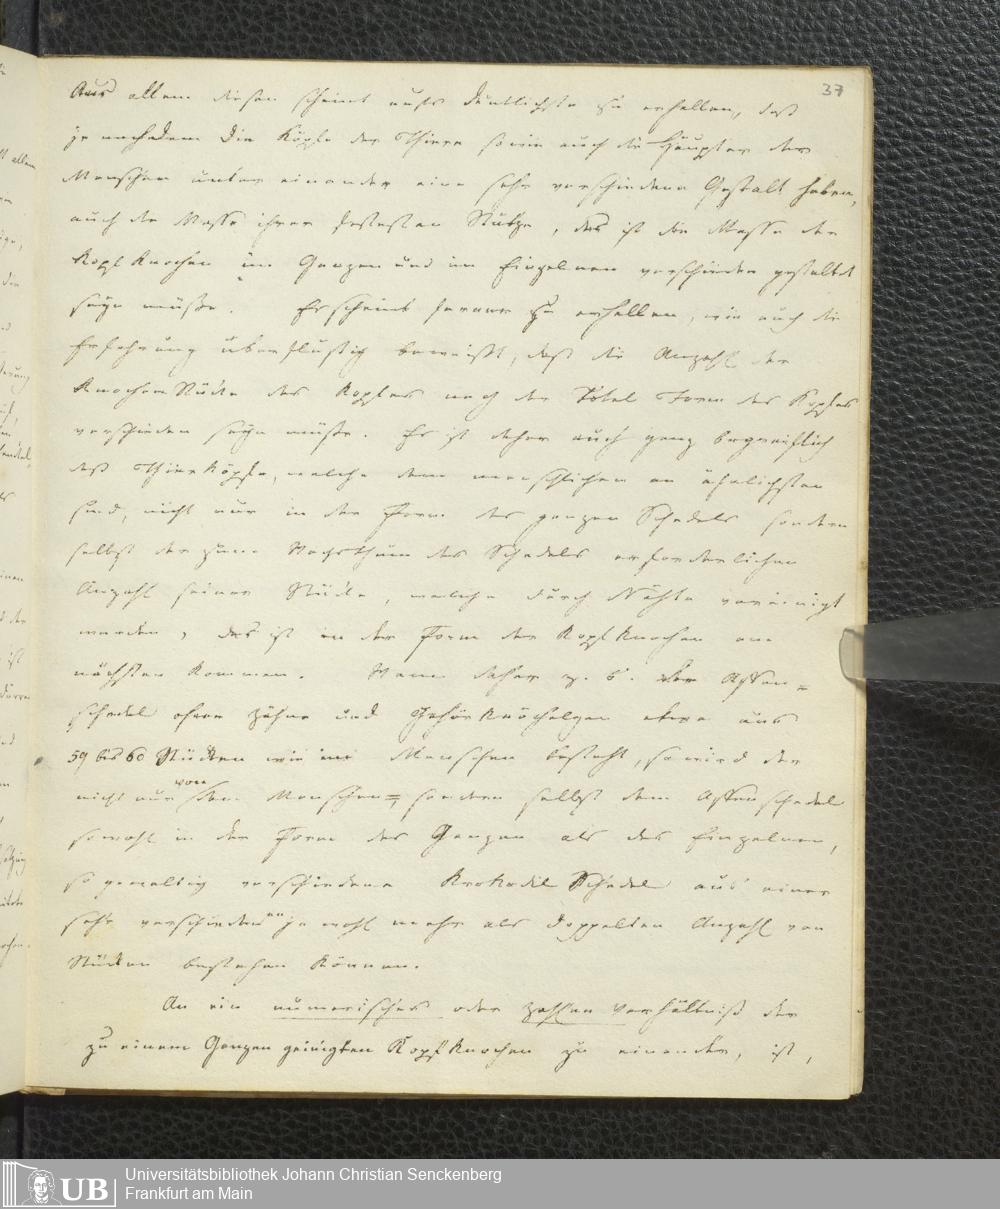 37
Aus allem diesen scheint aufs deutlichste zu erhellen, daß
je nachdem die Köpfe der Thiere sowie auch die Häupter der
Menschen unter einander eine sehr verschiedene Gestalt haben,
auch die Masse ihrer festesten Stütze, das ist die Masse der
Kopf Knochen im Ganzen und im Einzelnen verschieden gestaltet
seyn müsse. Es scheint ferner zu erhellen, wie auch die
Erfahrung überflüssig beweisst, dass die Anzahl der
Knochen Stücke des Kopfes nach der Total Form des Kopfes
verschieden seyn müsse. Es ist daher auch ganz begreiflich
daß Thier Köpfe, welche dem menschlichen am ähnlichsten
sind, nicht nur in der Form des ganzen Schedels sondern
selbst der zum Wachsthum des Schedels erforderlichen
Anzahl seiner Stücke, welche durch Nähte vereinigt
werden, das ist in der Form der Kopf Knochen am
nächsten kommen. Wenn daher z. b. der Affen=
schedel ohne Zähne und Gehör Knöchelgen etwa aus
59 bis 60 Stücken wie im Menschen besteht, so wird der
nicht nur von dem Menschen=, sondern selbst dem Affenschedel
sowohl in der Form des Ganzen als des Einzelnen,
so gewaltig verschiedene Krokodil Schedel aus einer
sehr verschiedenen ja wohl mehr als doppelten Anzahl von
Stücken bestehen können.
An ein numerisches oder Zahlen Verhältniß der
zu einem Ganzen geeinigten Kopf Knochen zu einander, ist,
UB
Universitätsbibliothek Johann Christian Senckenberg
Frankfurt am Main